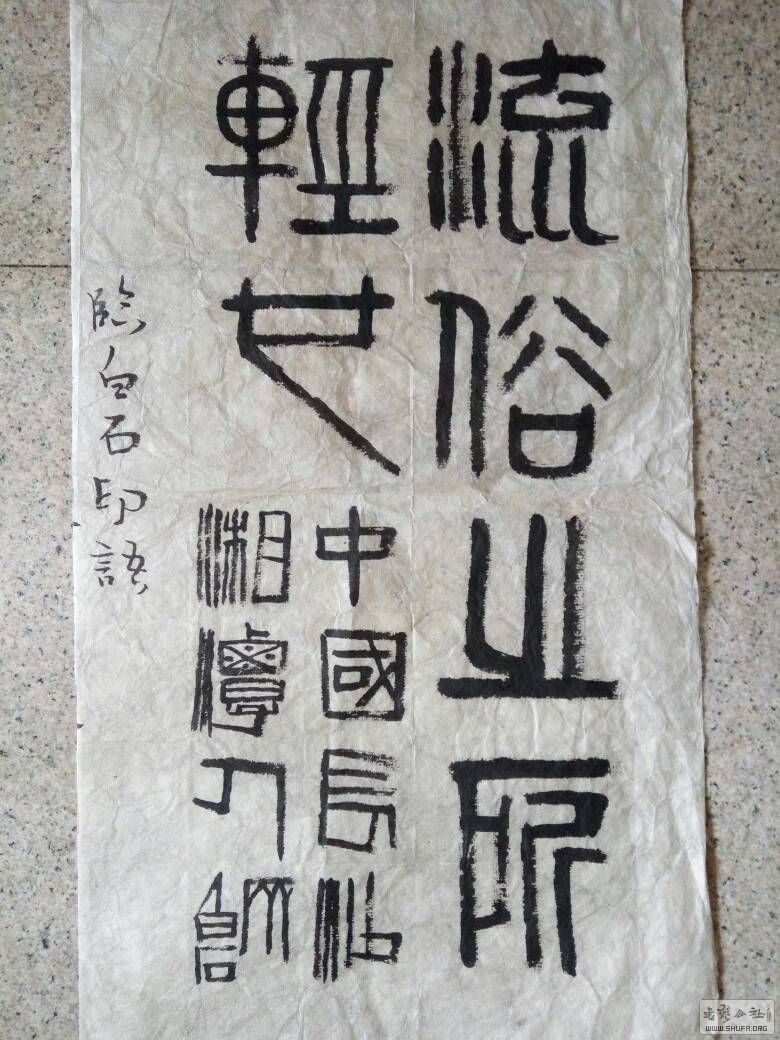 流俗之所
輕也
中國長沙
湘潭人
臨白石印語
公社
WWW.SHUFA.ORG